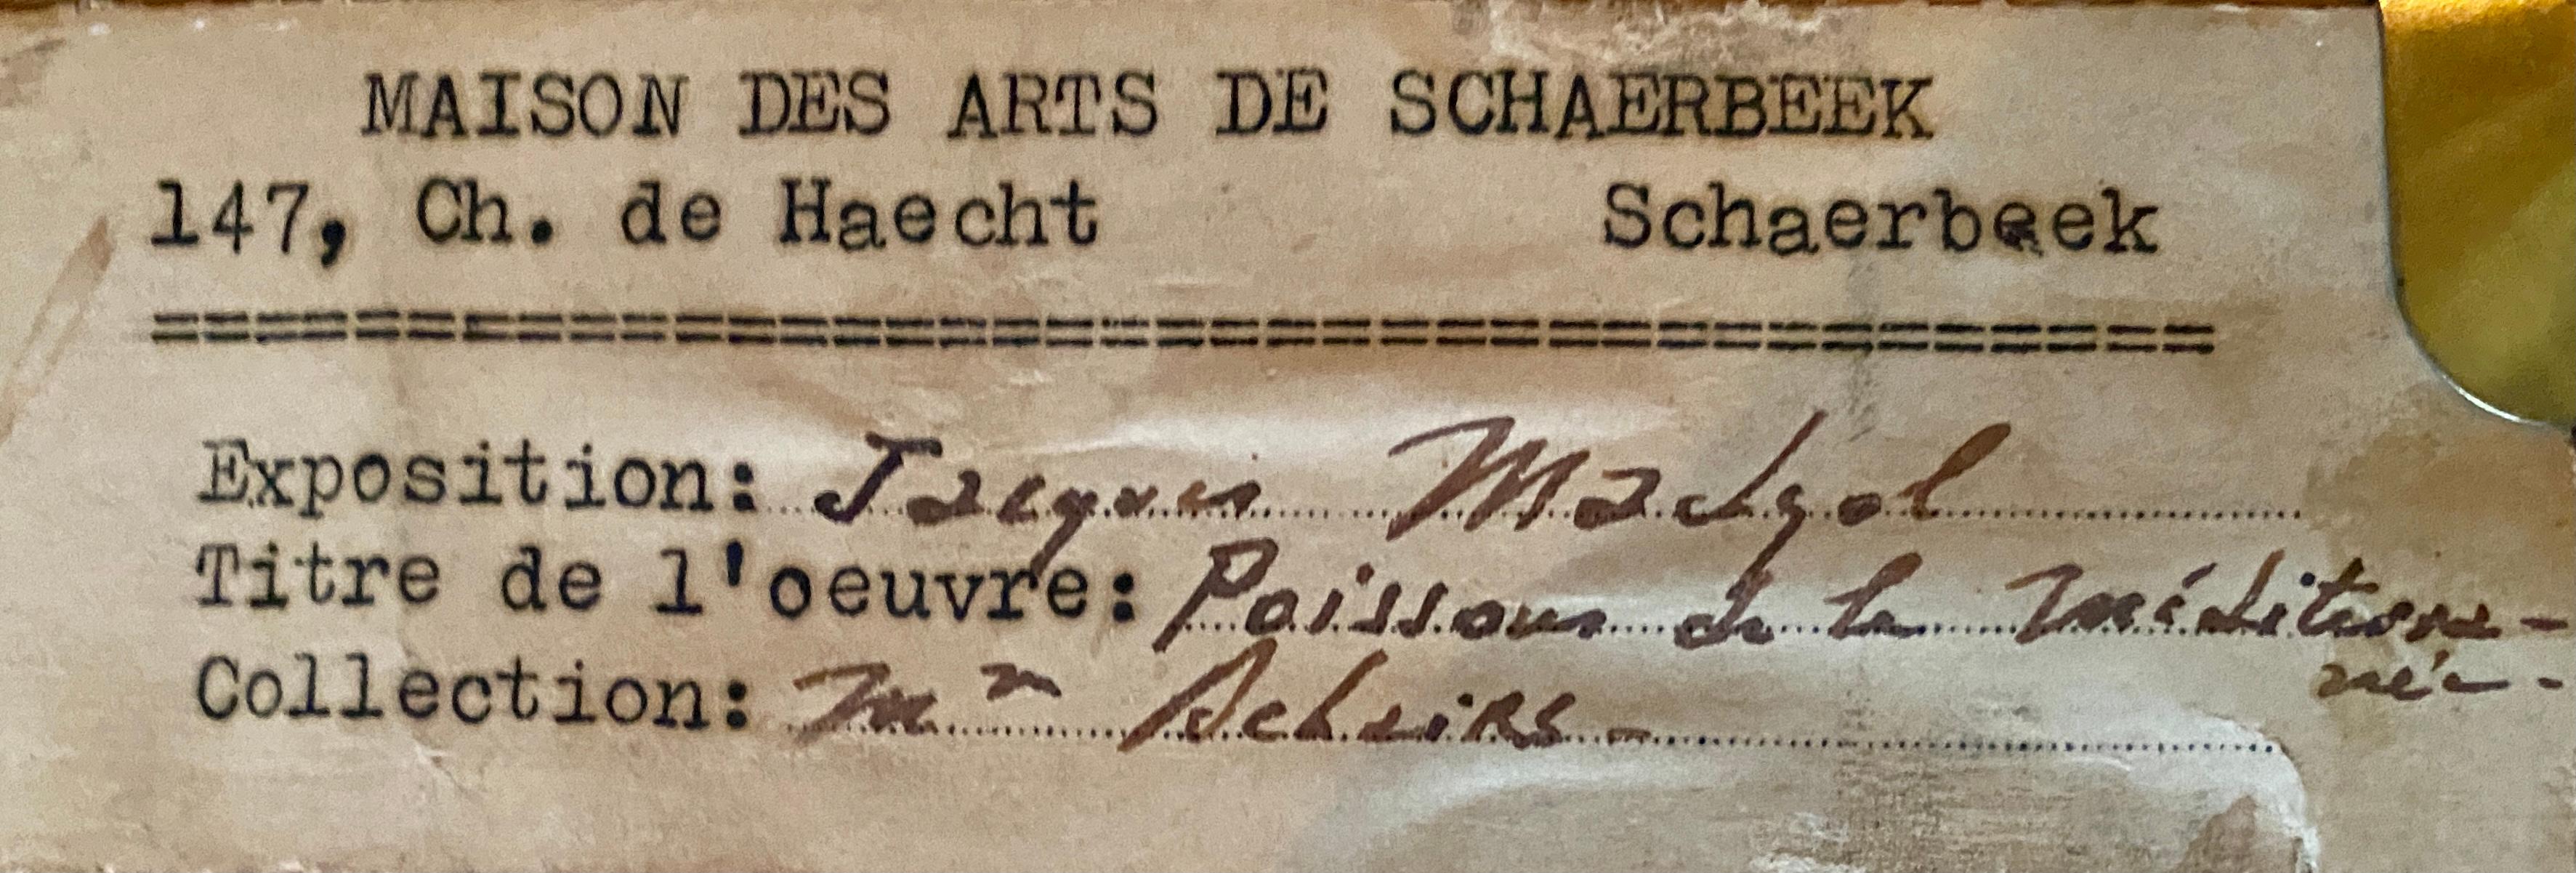 MAISON DES ARTS DE SCHAERBEEK
147, Ch. de Haecht Schaerbeek
========================================
Exposition: Jacques Madyol
Titre de l'oeuvre: Poissons de la Méditerra-
née-
Collection: Mr